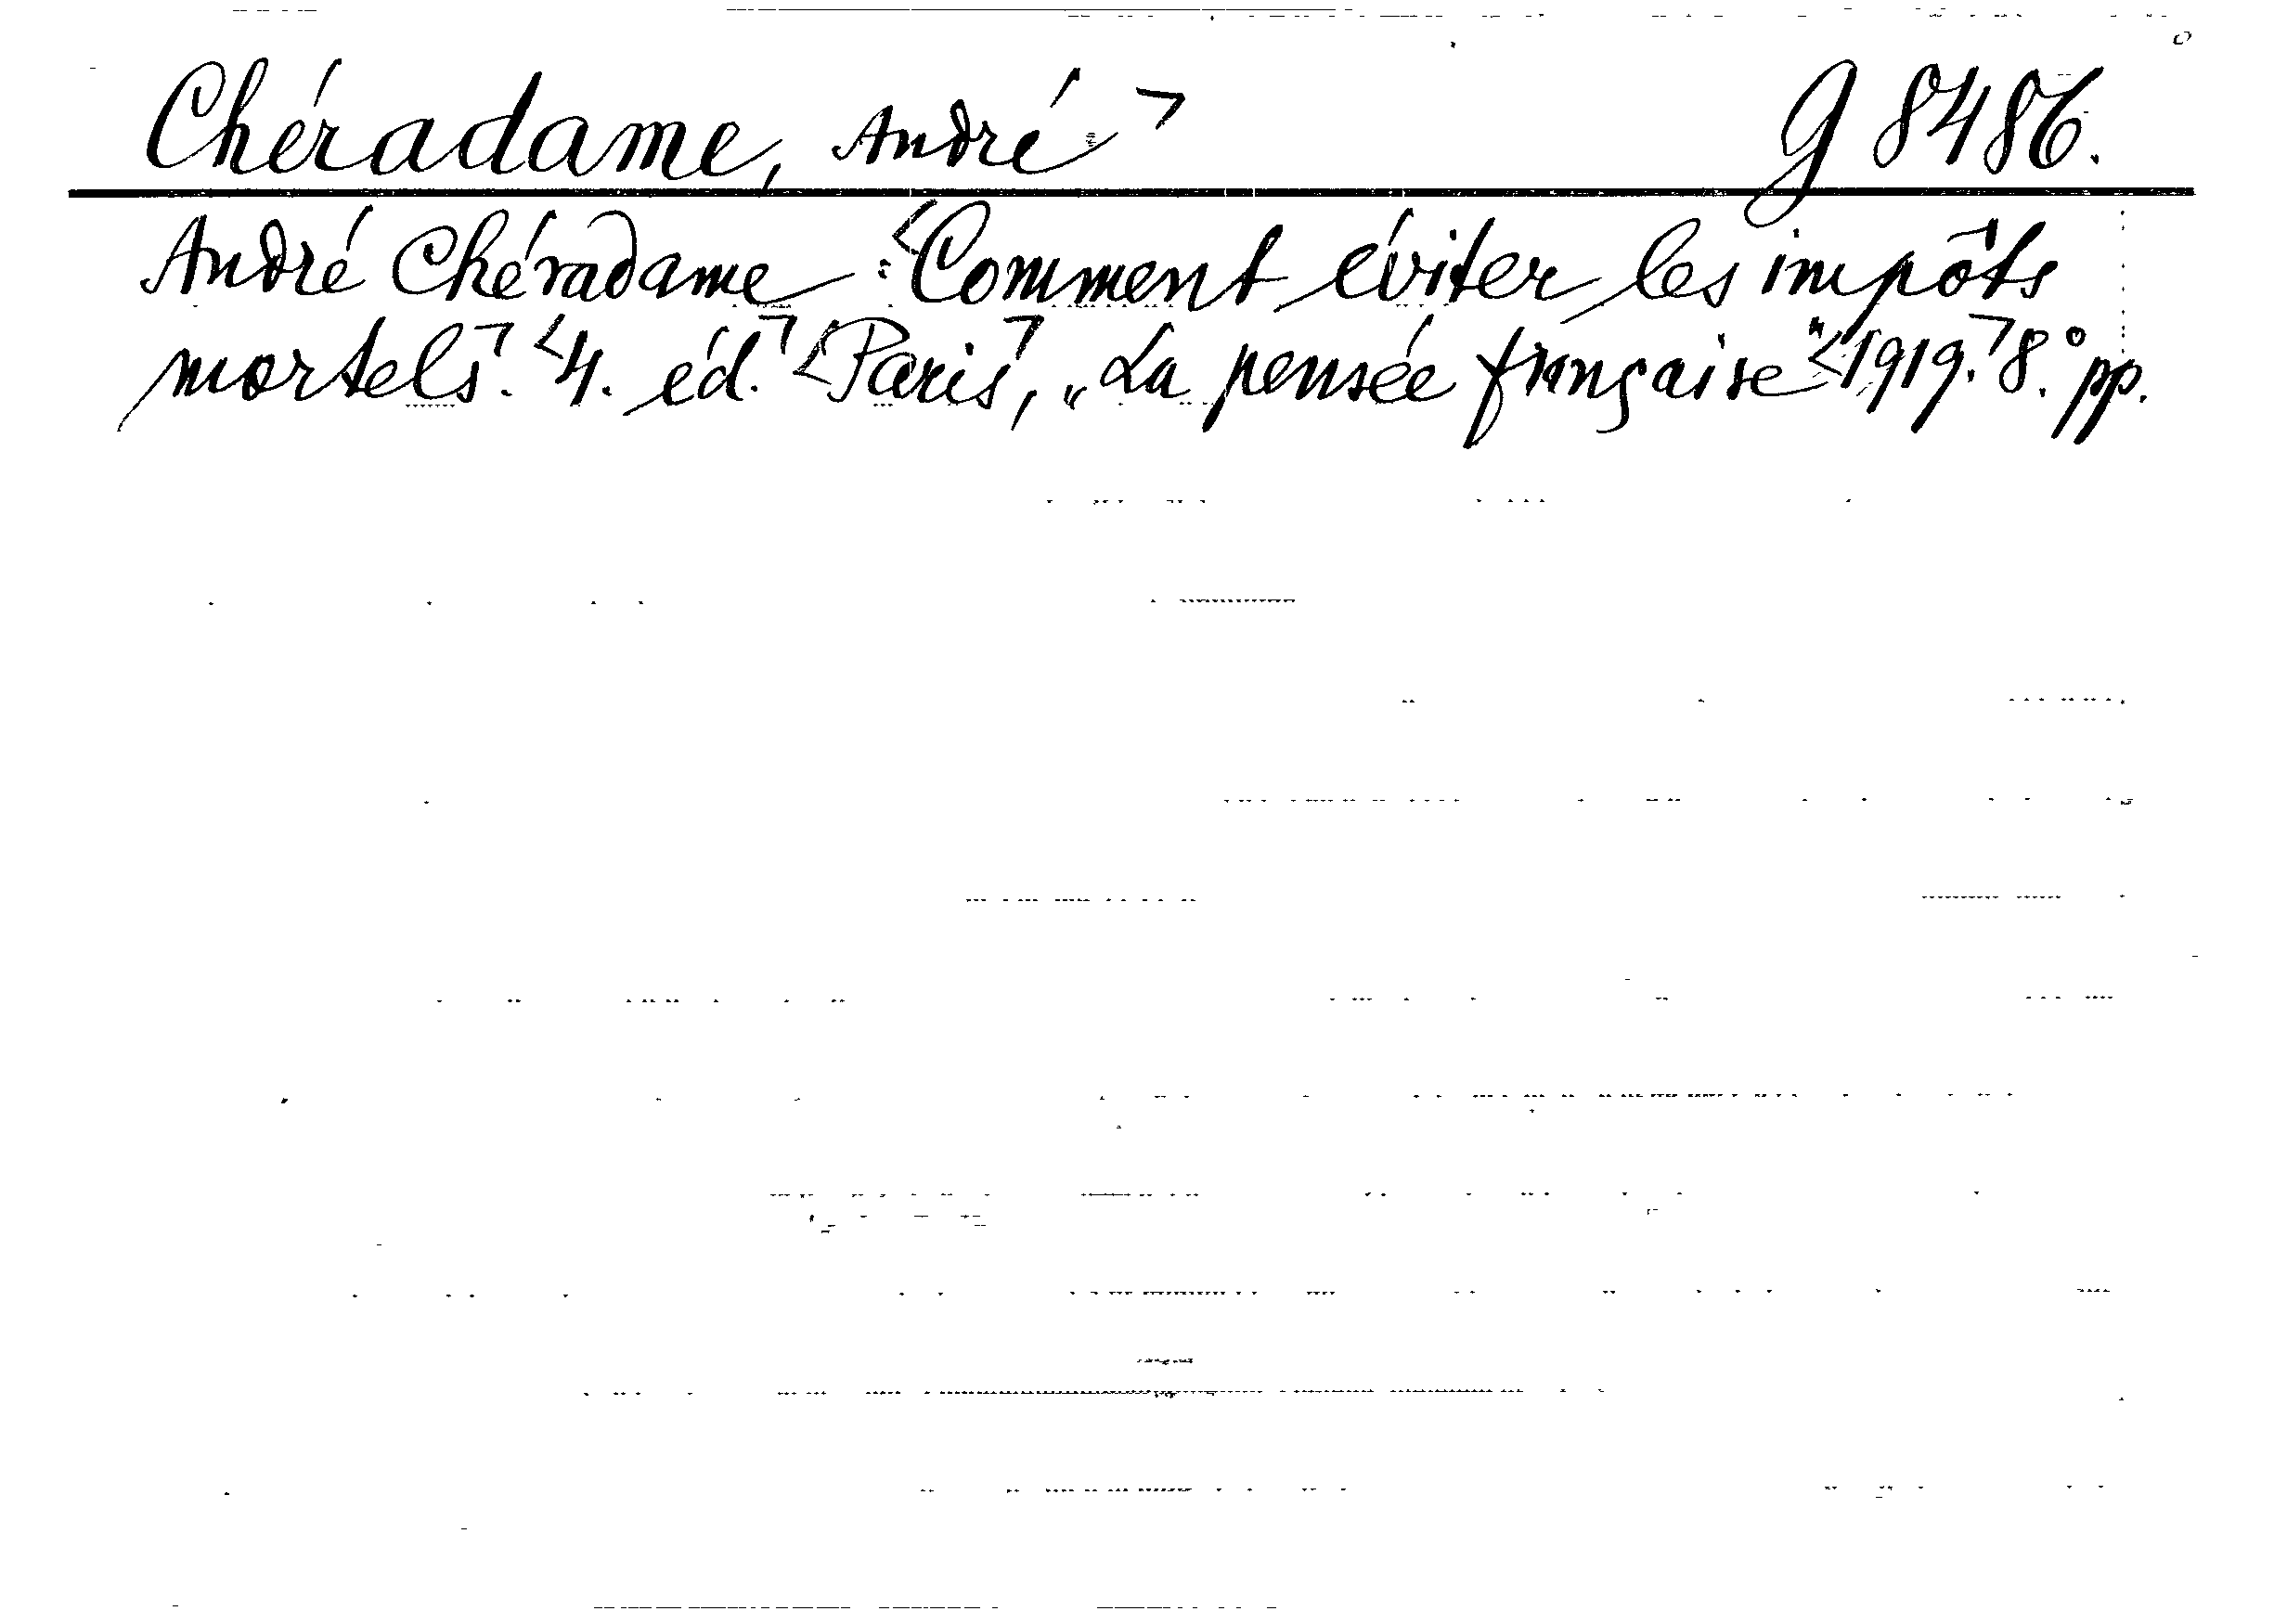 Chéradame, André ㄱ G 8486.
André Chéradame : <Comment éviter les impôts
mortels.ㄱ <4. éd.ㄱ <Parisㄱ, „La pensée française" <1919.ㄱ 8.° pp.